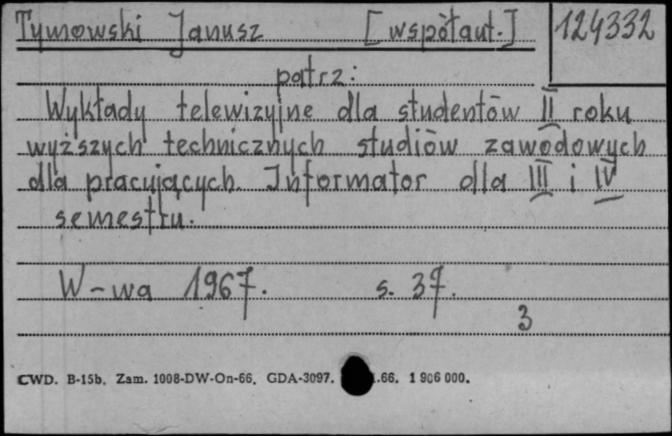 Tymowski Janusz [współaut.] 124332
patrz:
Wykłady telewizyjne dla studentów II roku
wyższych technicznych studiów zawodowych
dla pracujących. Informator dla III i IV
semestru.
W-wa 1967. s. 37.
3
CWD. B-15b. Zam. 1008-DW-On-66. GDA-3097. .66. 1 906 000.